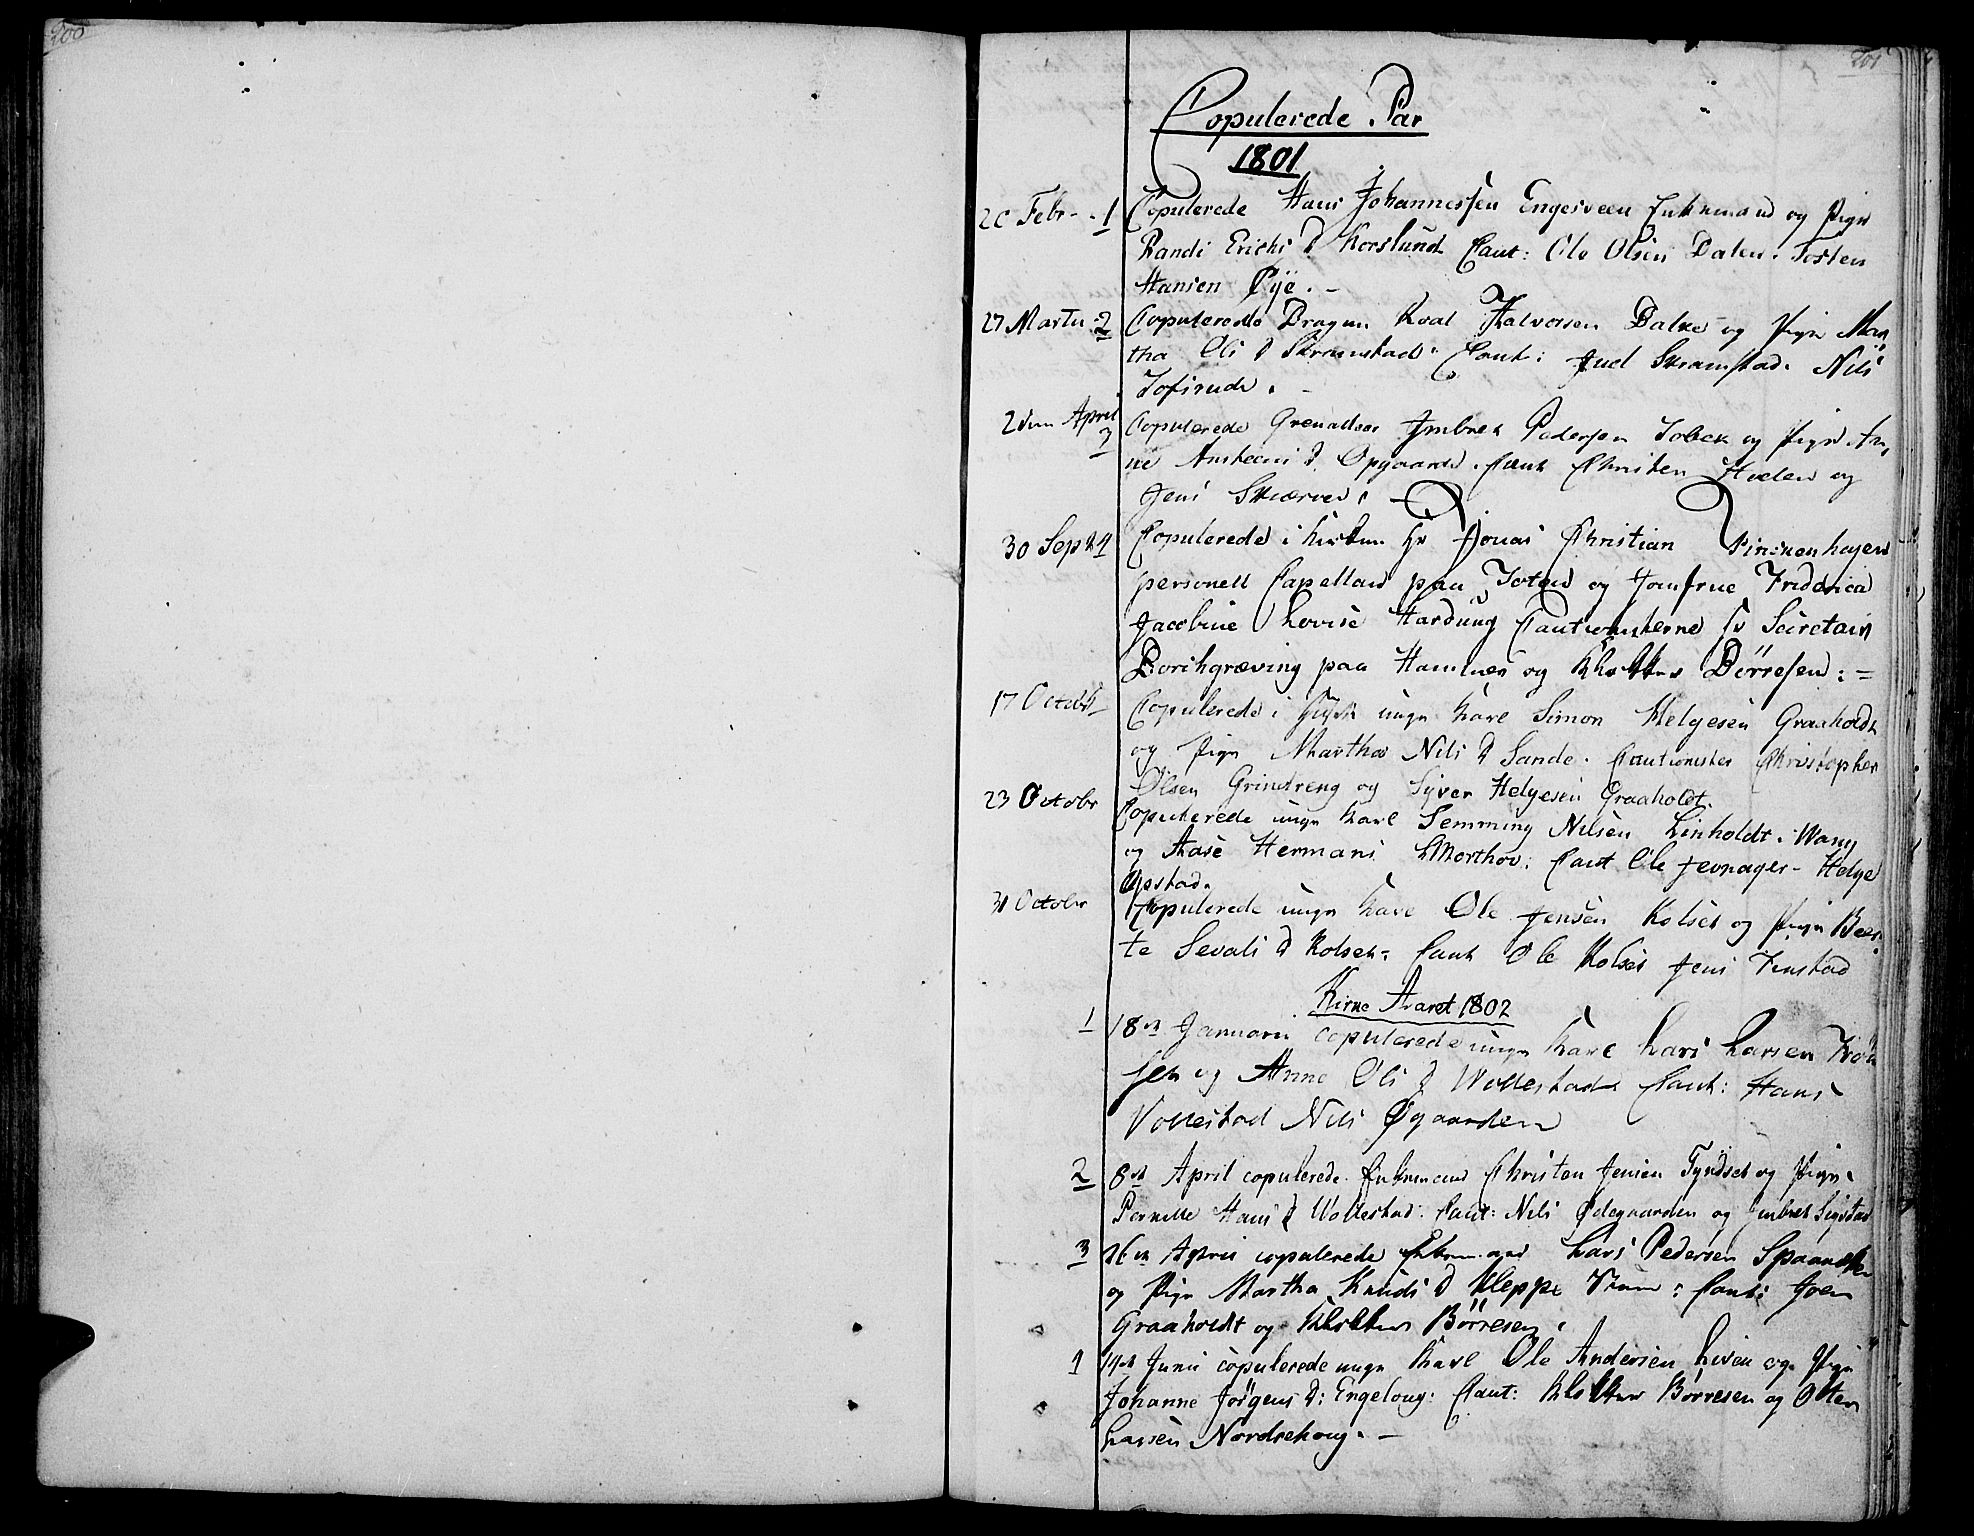 200
201
Copulerede Par
1801
20 Febr - 1 Copulerede Hans Johannessen Engesveen Enkemand og Pige
Randi Erichs D Korslund Caut: Ole Olsen Dalen. Tosten
Hansen Øye. -
27 Martii 2 Copulerede Dragun Halvorsen Dalne og Pige Mar
tha Ols D Skramstad: Caut: Juel Skramstad. Nils
Tofsrude. -
2den April 3 Copulerede Grenadeer Jmbret Pedersen og Pige An,
ne D. Opgaard. Caut Christen Hveden og
Jens Skierven. -
30 Sept 4 Copulerede i Kirken Hr Jonas Christian Pinnenhagen
personell Capellan paa Toten og Jomfrue Friderica
Jacobine Lovise Hardung Cautionisterne Hr Secretair
Borchgræving paa Hamner og Klokker Börresen: =
17 Octobr Copulerede i Huset unge Karl Simon Helgesen Graaholdt
og Pige Martha Nils D Sande. Cautionister Christopher
Olsen Grindreng og Syver Helgesen Graaholdt.
23 Octobr Copulerede unge Karl Semming Nilsen Linholdt. Wang
og Aase Hermans D Northov: Caut Ole Jevnager - Helge
Opstad.
31 Octobr Copulerede unge Karl Ole Jensen Kolset og Pige Beer-
te Sevals D Kolset: Caut Ole Kolset Jens Finstad
Kirke Aaret 1802
1 18de Januarii copulerede unge Karl Lars Larsen
og Anne Ols D Wollestad Caut: Hans
Vollestad Nils Øgaarden
2 8de April copulerede Enkemand Christen Jensen Tyndset og Pige
Pernille Hans D Wollestad. Caut: Nils Ødegaarden og Jmbret Sigstad
3 16de April copulerede Enkemand Lars Pedersen
og Pige Martha Knuds D Kleppe: Caut: Joen
Graaholdt og Klokker Börresen.
4 14de Junii copulerede unge Karl Ole Andersen Lien og Pige
Johanne Jörgens D: Engeloug: Caut: Klokker Börresen og Osten
Larsen Nordsehoug. -